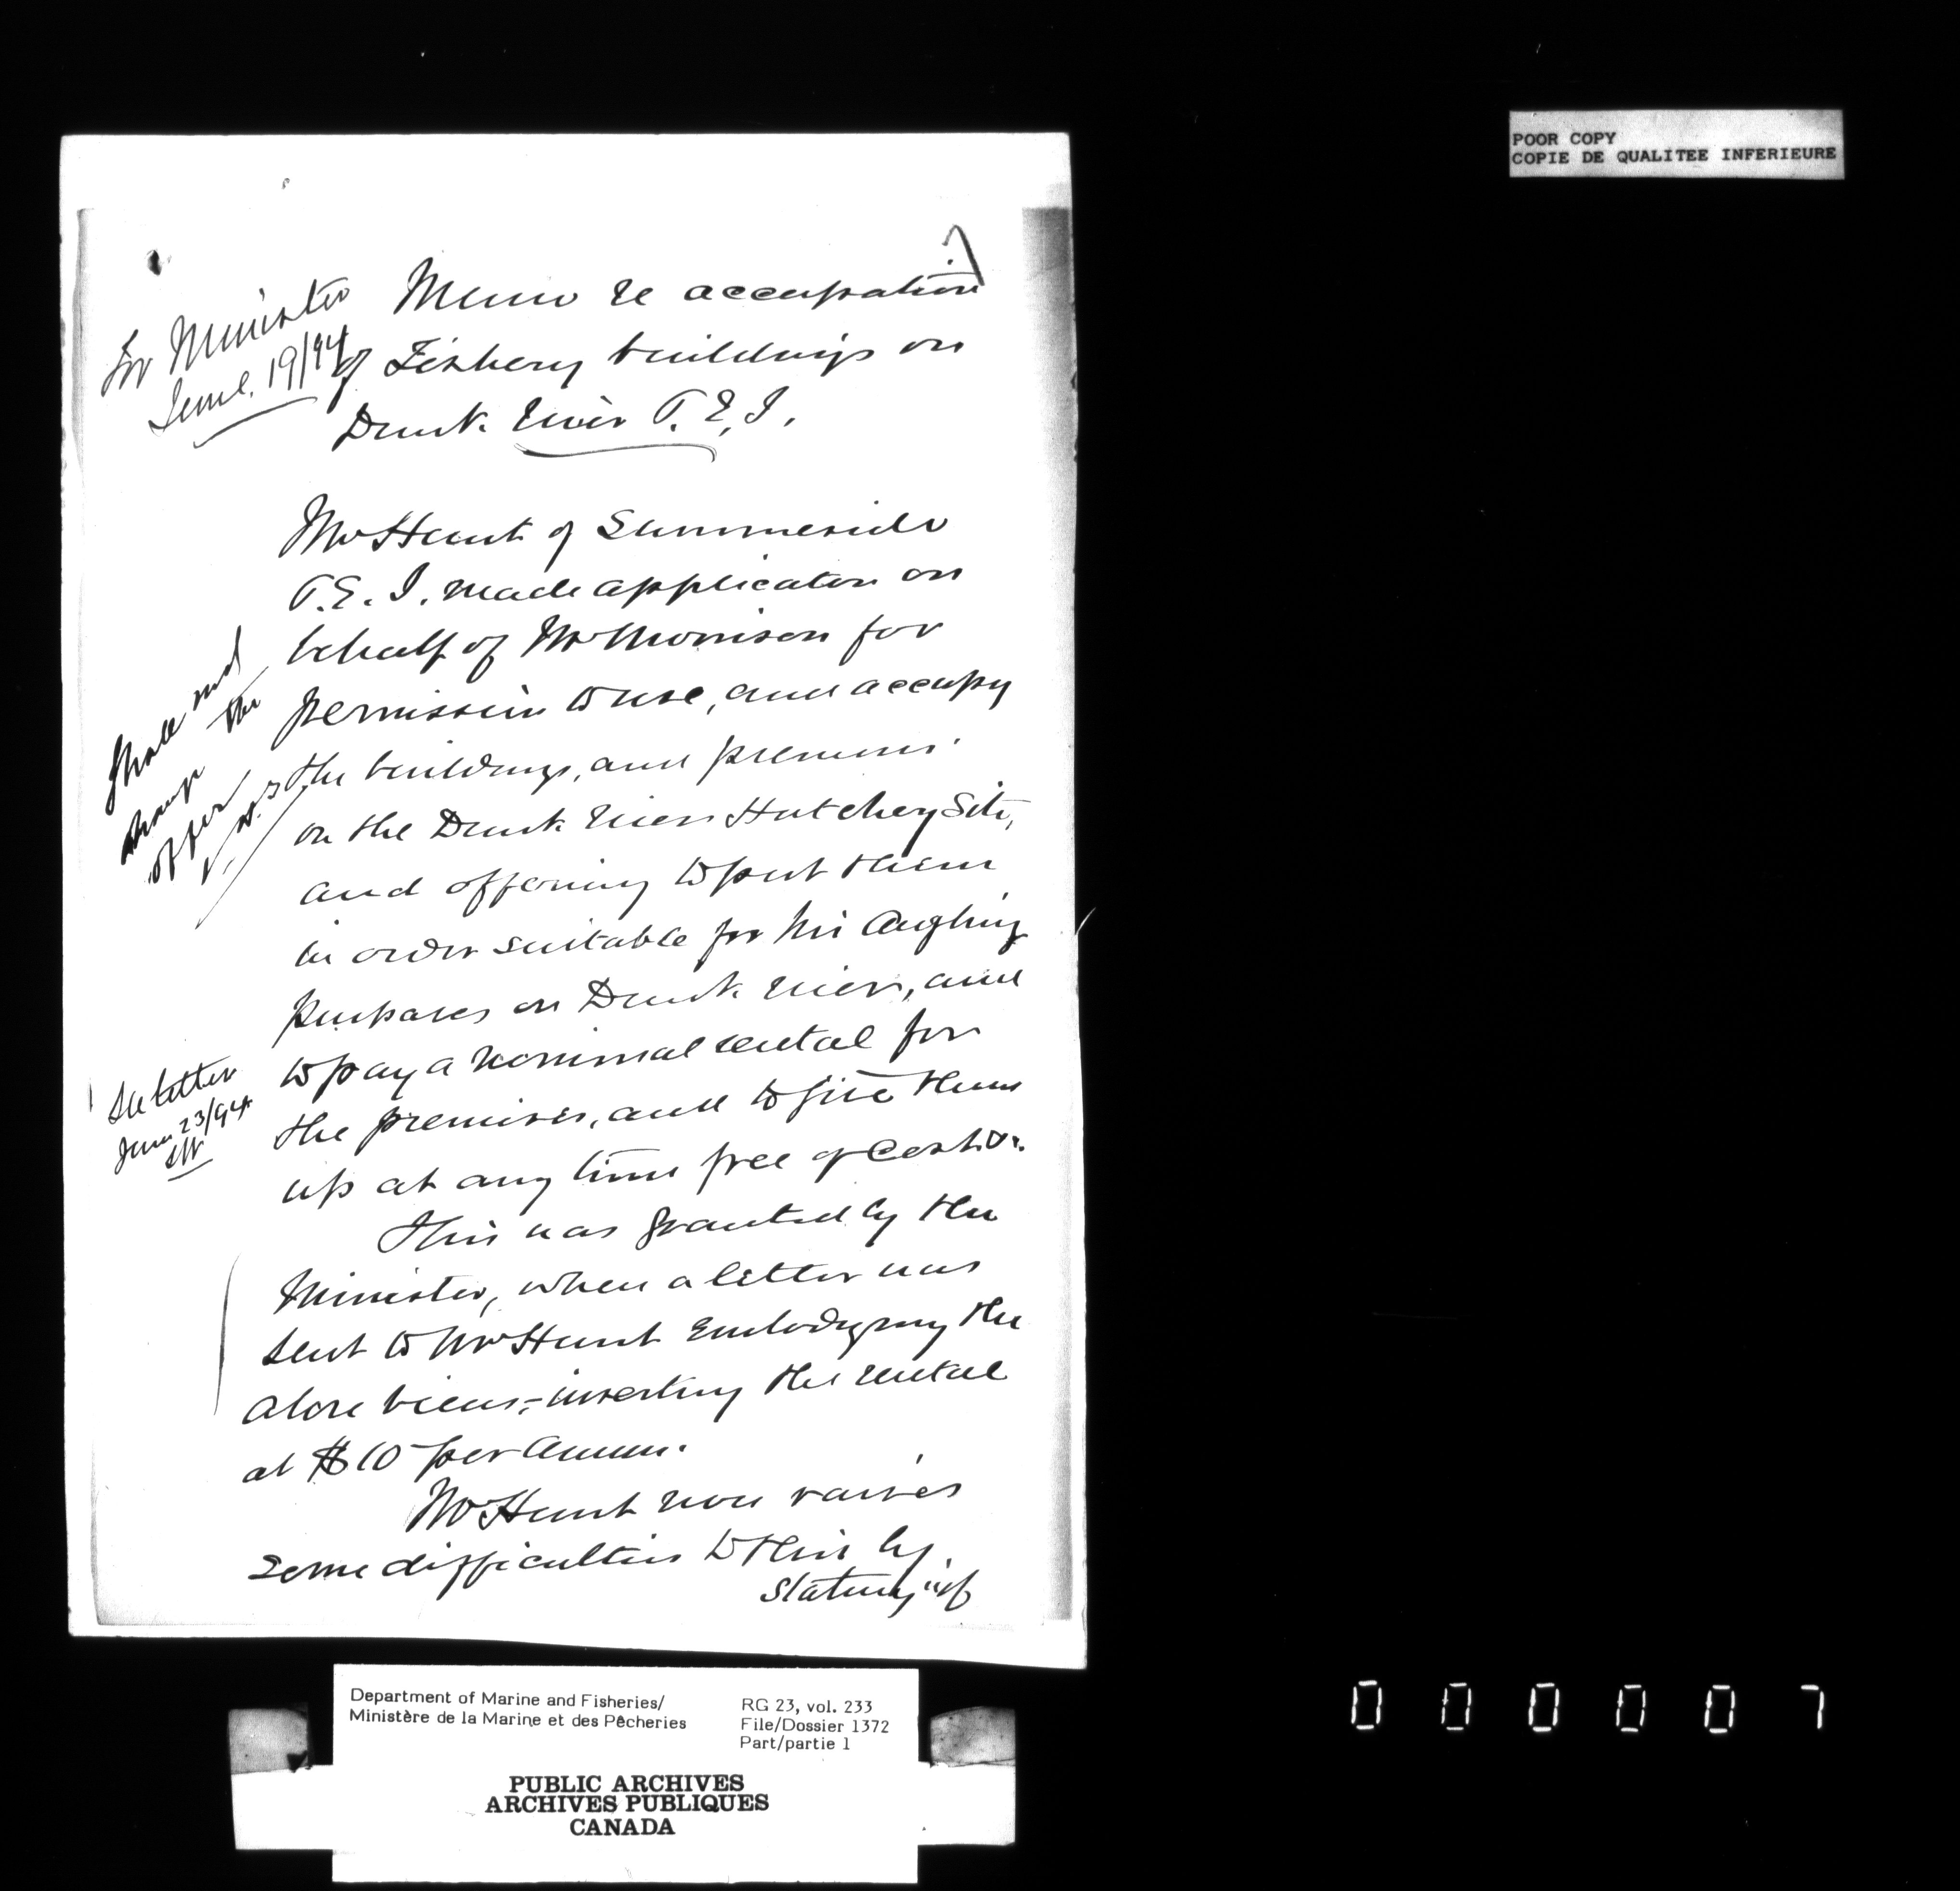 POOR COPY
COPIE DE QUALITEE INFERIEURE
7
For Minister
June. 19/94
Memo re occupation
of Fishery buildings on
Dunk River P.E.I.
Mr Hunt of Summerside
P.E.I. made application on
behalf of Mr Morrison for
permission to use, and occupy
the buildings, and premises
on the Dunk River Hatchery Site,
and offering to put them
in order suitable for his Angling
purposes on Dunk River, and
to pay a nominal rental for
the premises, and to give them
up at any time free of cost &c.
This was granted by the
Minister, when a letter was
sent to Mr Hunt embodying the
above views, - inserting the rental
at $10 per annum.
Mr Hunt now raises
some difficulties to this by
stating "if
shall not
change the
offer
See letter
June 23/94
Department of Marine and Fisheries/
Ministère de la Marine et des Pêcheries
RG 23, vol. 233
File/Dossier 1372
Part/partie 1
PUBLIC ARCHIVES
ARCHIVES PUBLIQUES
CANADA
000007